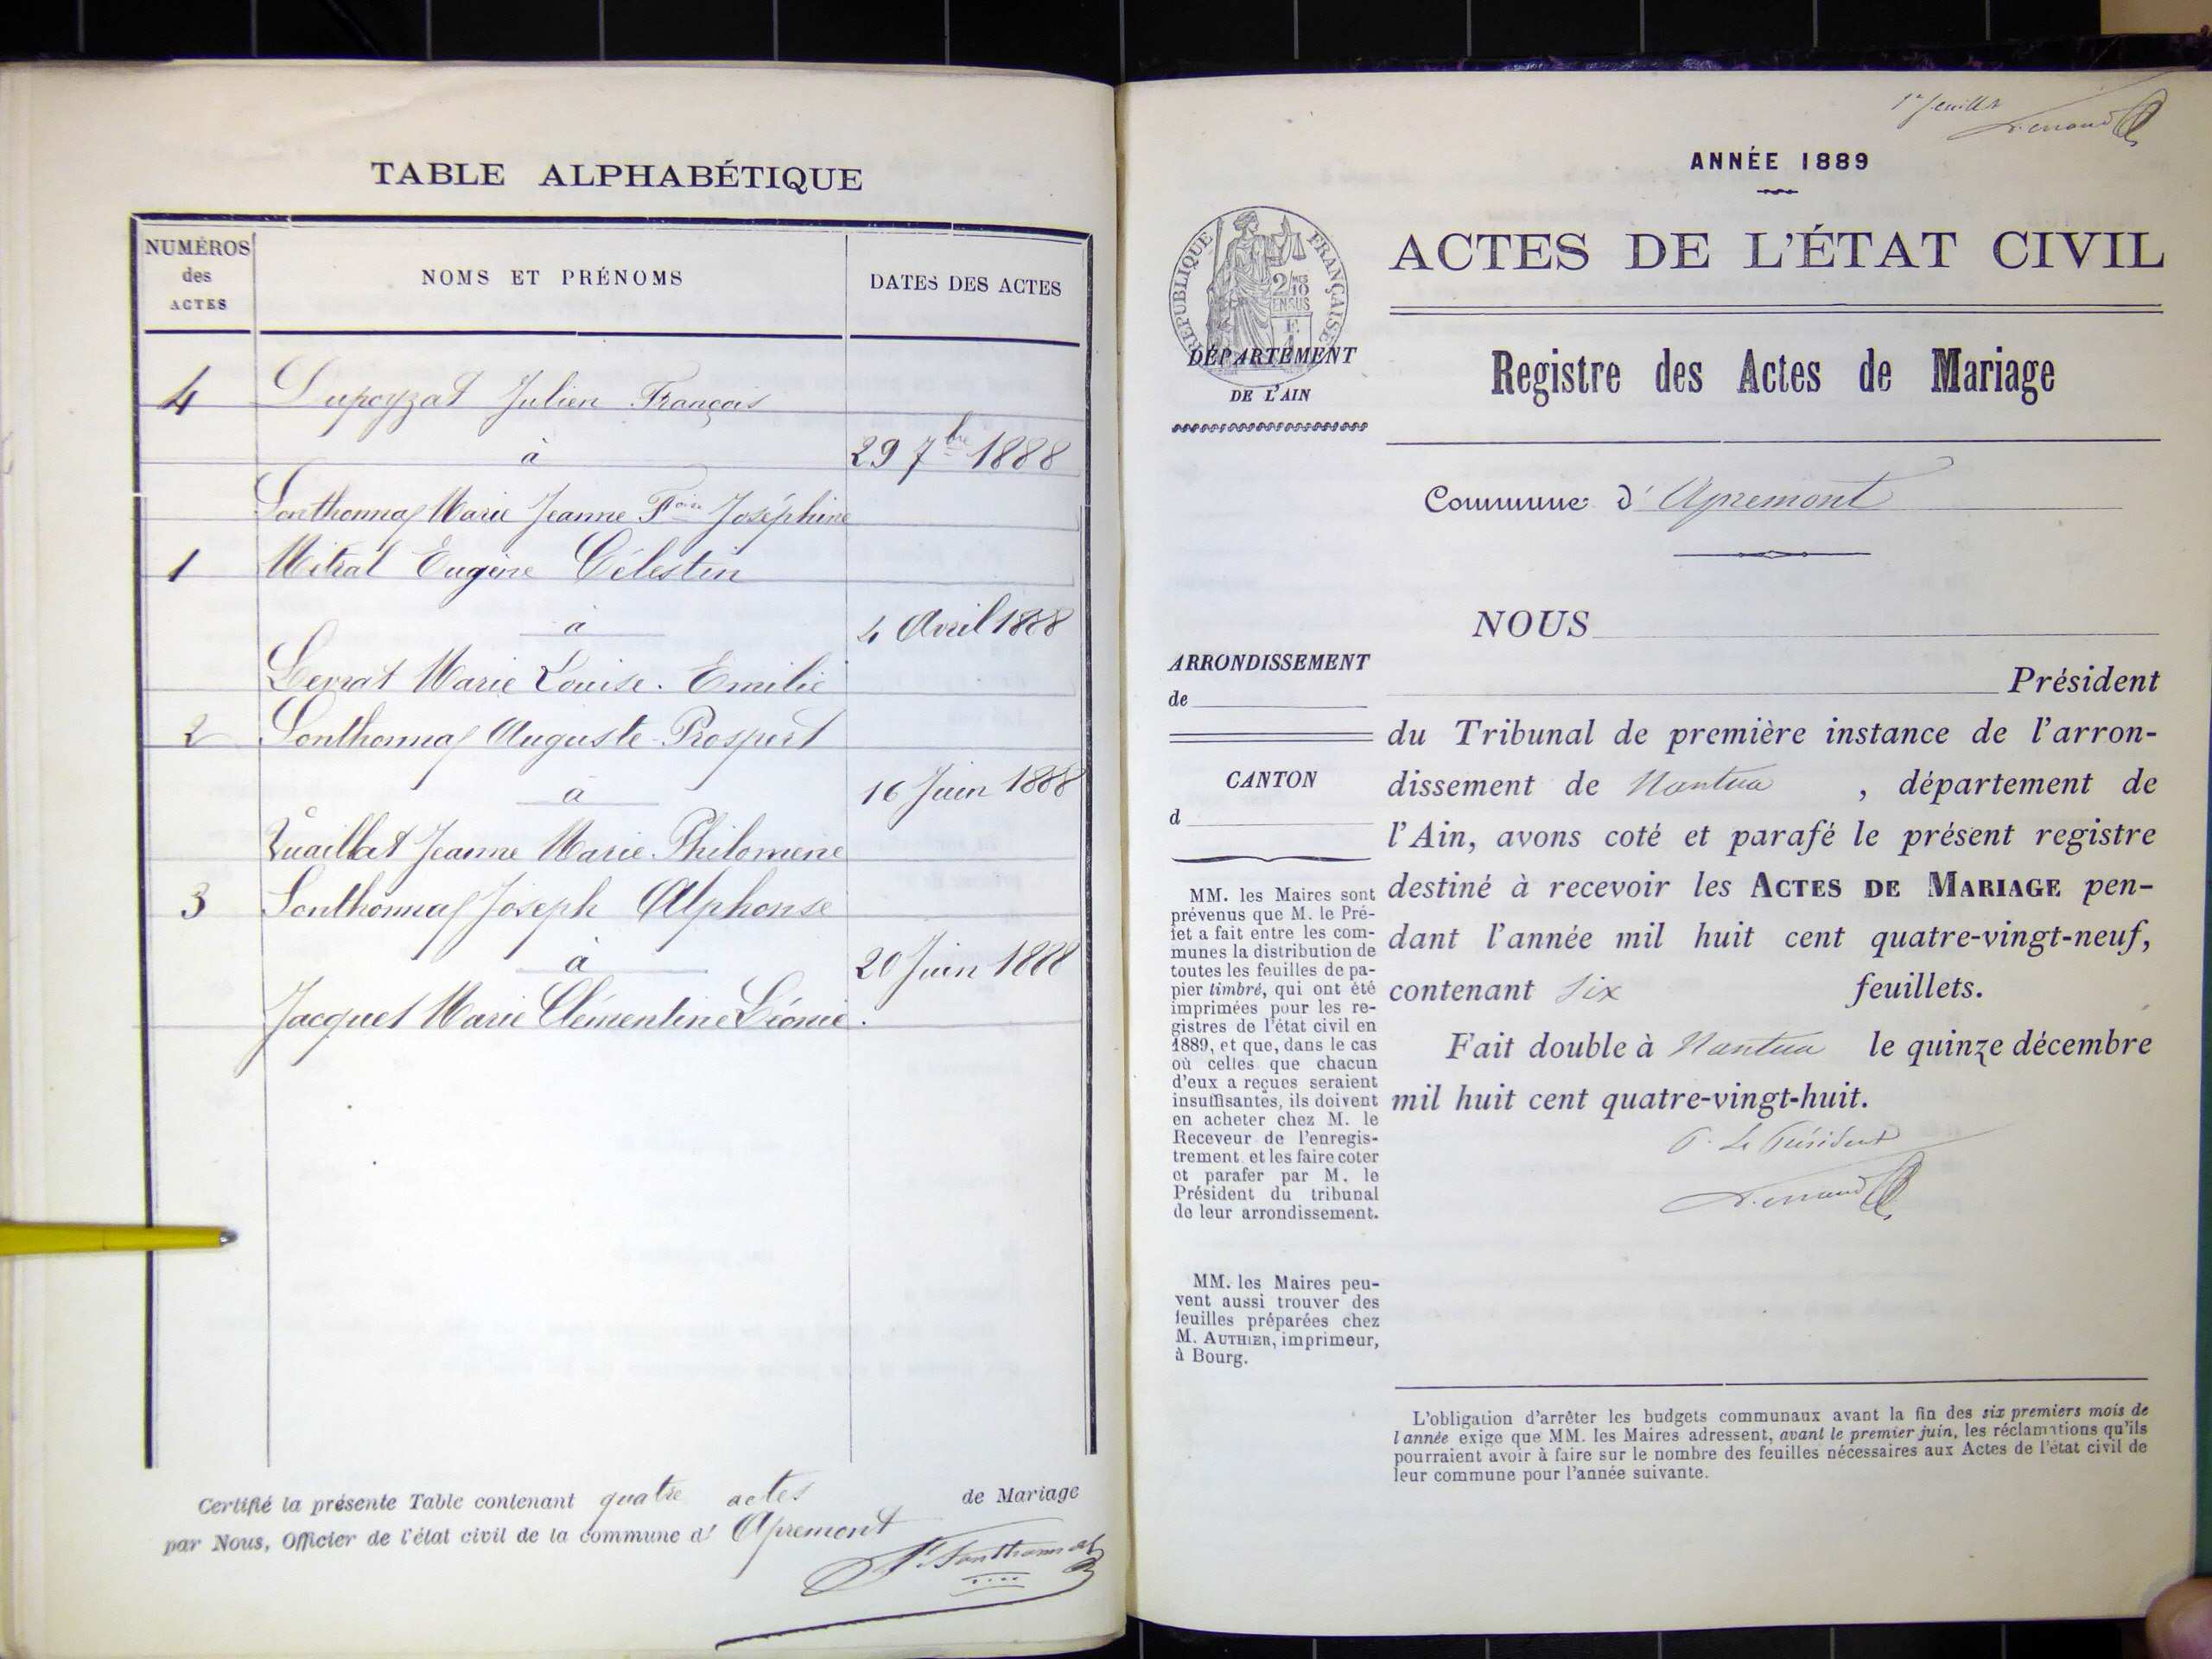 TABLE ALPHABÉTIQUE
NUMÉROS
des
ACTES
NOMS ET PRÉNOMS
DATES DES ACTES
4 Dupeyzat Julien François
à
29 7bre 1888
Sonthonnax Marie Jeanne Foise Joséphine
1 Mitral Eugène Célestin
à
4 Avril 1888
Levrat Marie Louise Emilie
2 Sonthonnax Auguste Prospert
à
16 Juin 1888
Vuaillat Jeanne Marie Philomene
3 Sonthonnax Joseph Alphonse
à
20 Juin 1888
Jacquet Marie Clémentine Léonie.
Certifié la présente Table contenant quatre actes de Mariage
par Nous, Officier de l'état civil de la commune d' Apremont
Sonthonnax
1er feuillet
ANNÉE 1889
RÉPUBLIQUE FRANÇAISE
2/10
EN SUS
DÉPARTEMENT
DE L'AIN
ACTES DE L'ÉTAT CIVIL
Registre des Actes de Mariage
Commune d' Apremont
ARRONDISSEMENT
de
CANTON
d
MM. les Maires sont
prévenus que M. le Pré-
fet a fait entre les com-
munes la distribution de
toutes les feuilles de pa-
pier timbré, qui ont été
imprimées pour les re-
gistres de l'état civil en
1889, et que, dans le cas
où celles que chacun
d'eux a reçues seraient
insuffisantes, ils doivent
en acheter chez M. le
Receveur de l'enregis-
trement et les faire coter
et parafer par M. le
Président du tribunal
de leur arrondissement.
MM. les Maires peu-
vent aussi trouver des
feuilles préparées chez
M. AUTHIER, imprimeur,
à Bourg.
NOUS
Président
du Tribunal de première instance de l'arron-
dissement de Nantua , département de
l'Ain, avons coté et parafé le présent registre
destiné à recevoir les ACTES DE MARIAGE pen-
dant l'année mil huit cent quatre-vingt-neuf,
contenant six feuillets.
Fait double à Nantua le quinze décembre
mil huit cent quatre-vingt-huit.
P. Le Président
L'obligation d'arrêter les budgets communaux avant la fin des six premiers mois de
l'année exige que MM. les Maires adressent, avant le premier juin, les réclamations qu'ils
pourraient avoir à faire sur le nombre des feuilles nécessaires aux Actes de l'état civil de
leur commune pour l'année suivante.